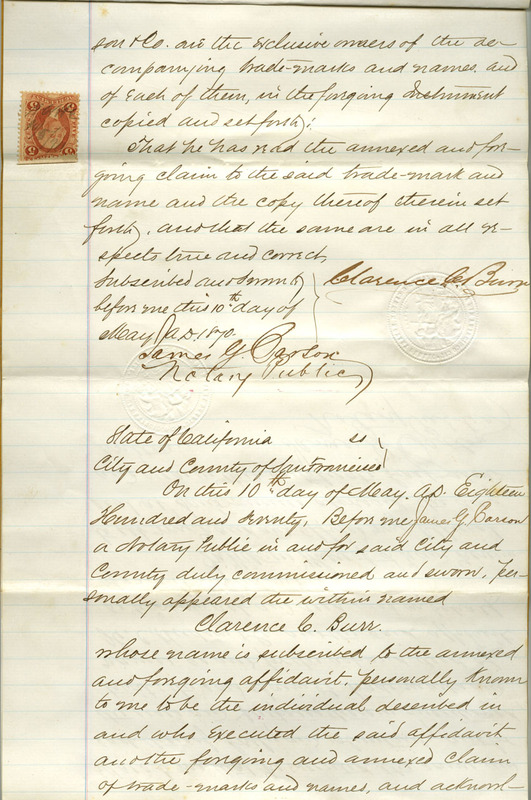 son & Co. are the exclusive owners of the ac-
companying trade-marks and names and
of each of them, in the forgoing Instrument
copied and set forth;
That he has read the annexed and for-
going claim to the said trade-mark and
name and the copy thereof therein set
forth, and that the same are in all re-
spects true and correct,
Subscribed and sworn to
before me this 10th day of
May A.D. 1870.
Clarence C. Burr
James G. Carson
Notary Public
State of California ss
City and County of San Francisco
On this 10th day of May, A.D. Eighteen
Hundred and seventy, Before me James G. Carson
a Notary Public in and for said City and
County duly commissioned and sworn, per-
sonally appeared the within named
Clarence C. Burr.
whose name is subscribed to the annexed
and forgoing affidavit, personally known
to me to be the individual described in
and who executed the said affidavit
and the forgoing and annexed claim
of trade-marks and names, and acknowl-